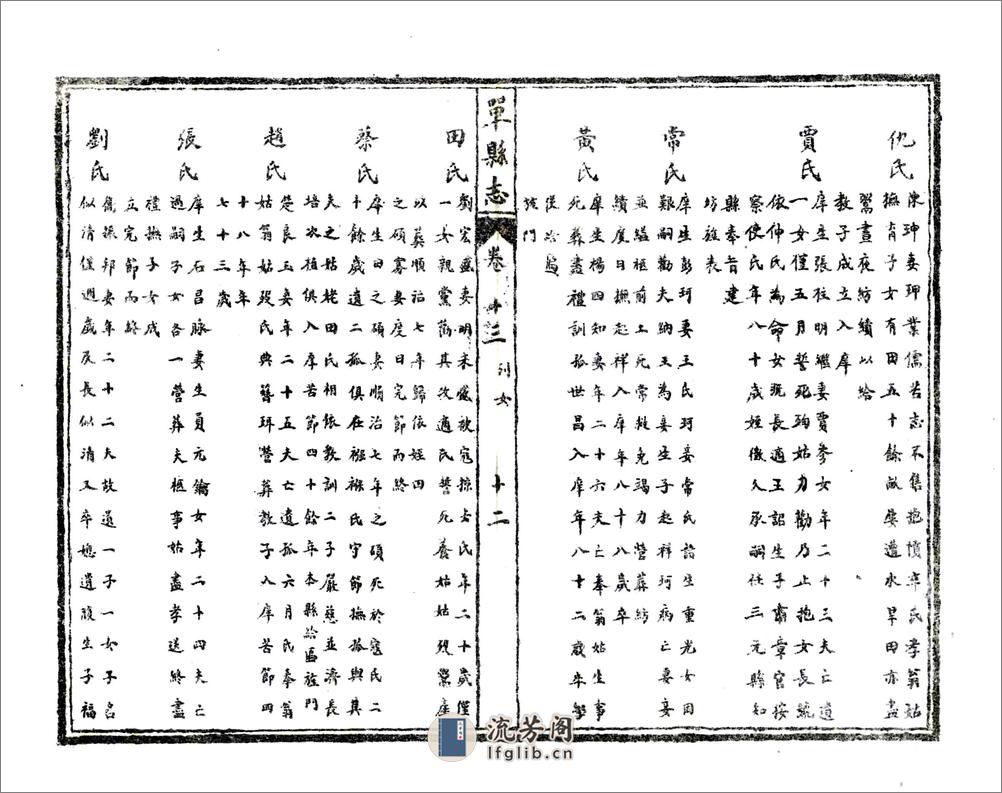 仇氏
陳珅妻珅業儒苦志不售抱憤卒氏孝翁姑
撫育子女有田五十餘畝屢遭水旱田亦盡
鬻晝夜紡績以給
教子成立入庠
賈氏
庠生張往明繼妻賈參女年二十三夫亡遺
一女僅五月誓死殉姑力勸乃止抱女長號
依伸氏為命女既長適王詔生子肅章官按
察使氏年八十歲姪儼久承嗣任三元縣知
縣奉旨建
坊旌表
常氏
庠生彭珂妾王氏珂妾常氏諸生重光女因
艱嗣勸夫納王為妾生子起祥珂病亡妻妾
並縊柩前王死常救免竭力營葬紡
績度日撫起祥入庠年八十八歲卒
黃氏
庠生楊四知妻年二十六夫亡奉翁姑生事
死葬盡禮訓孤世昌入庠年八十二歲卒學
單縣志
卷十三
列女
十二
田氏
劉宏盛妻明末盛被寇掠去氏年二十歲僅
一女親黨勸其改適氏誓死養姑姑歿鬻產
以葬順治七年歸依姪田
之碩寡妻度日完節而終
蔡氏
庠生田之碩妻順治七年之碩死於寇氏二
十餘歲遺二孤俱在襁褓氏守節撫孤與其
夫之姑老田氏相依教訓二子嚴慈並濟長
培次植俱入庠苦節四十餘年本縣給匾旌門
趙氏
楚良玉妻年二十五夫亡遺孤六月氏奉翁
姑翁姑歿氏典簪珥營葬教子入庠苦節四
十八年年
七十三歲
張氏
庠生石昌脉妻生員元鑰女年二十四夫亡
過嗣子女各一營葬夫柩事姑盡孝送終盡
禮撫子女成
立完節而終
劉氏
雋振邦妻年二十二夫故遺一子一女子名
似清僅週歲及長似清又卒媳遺腹生子福
流芳阁
lfglib.cn